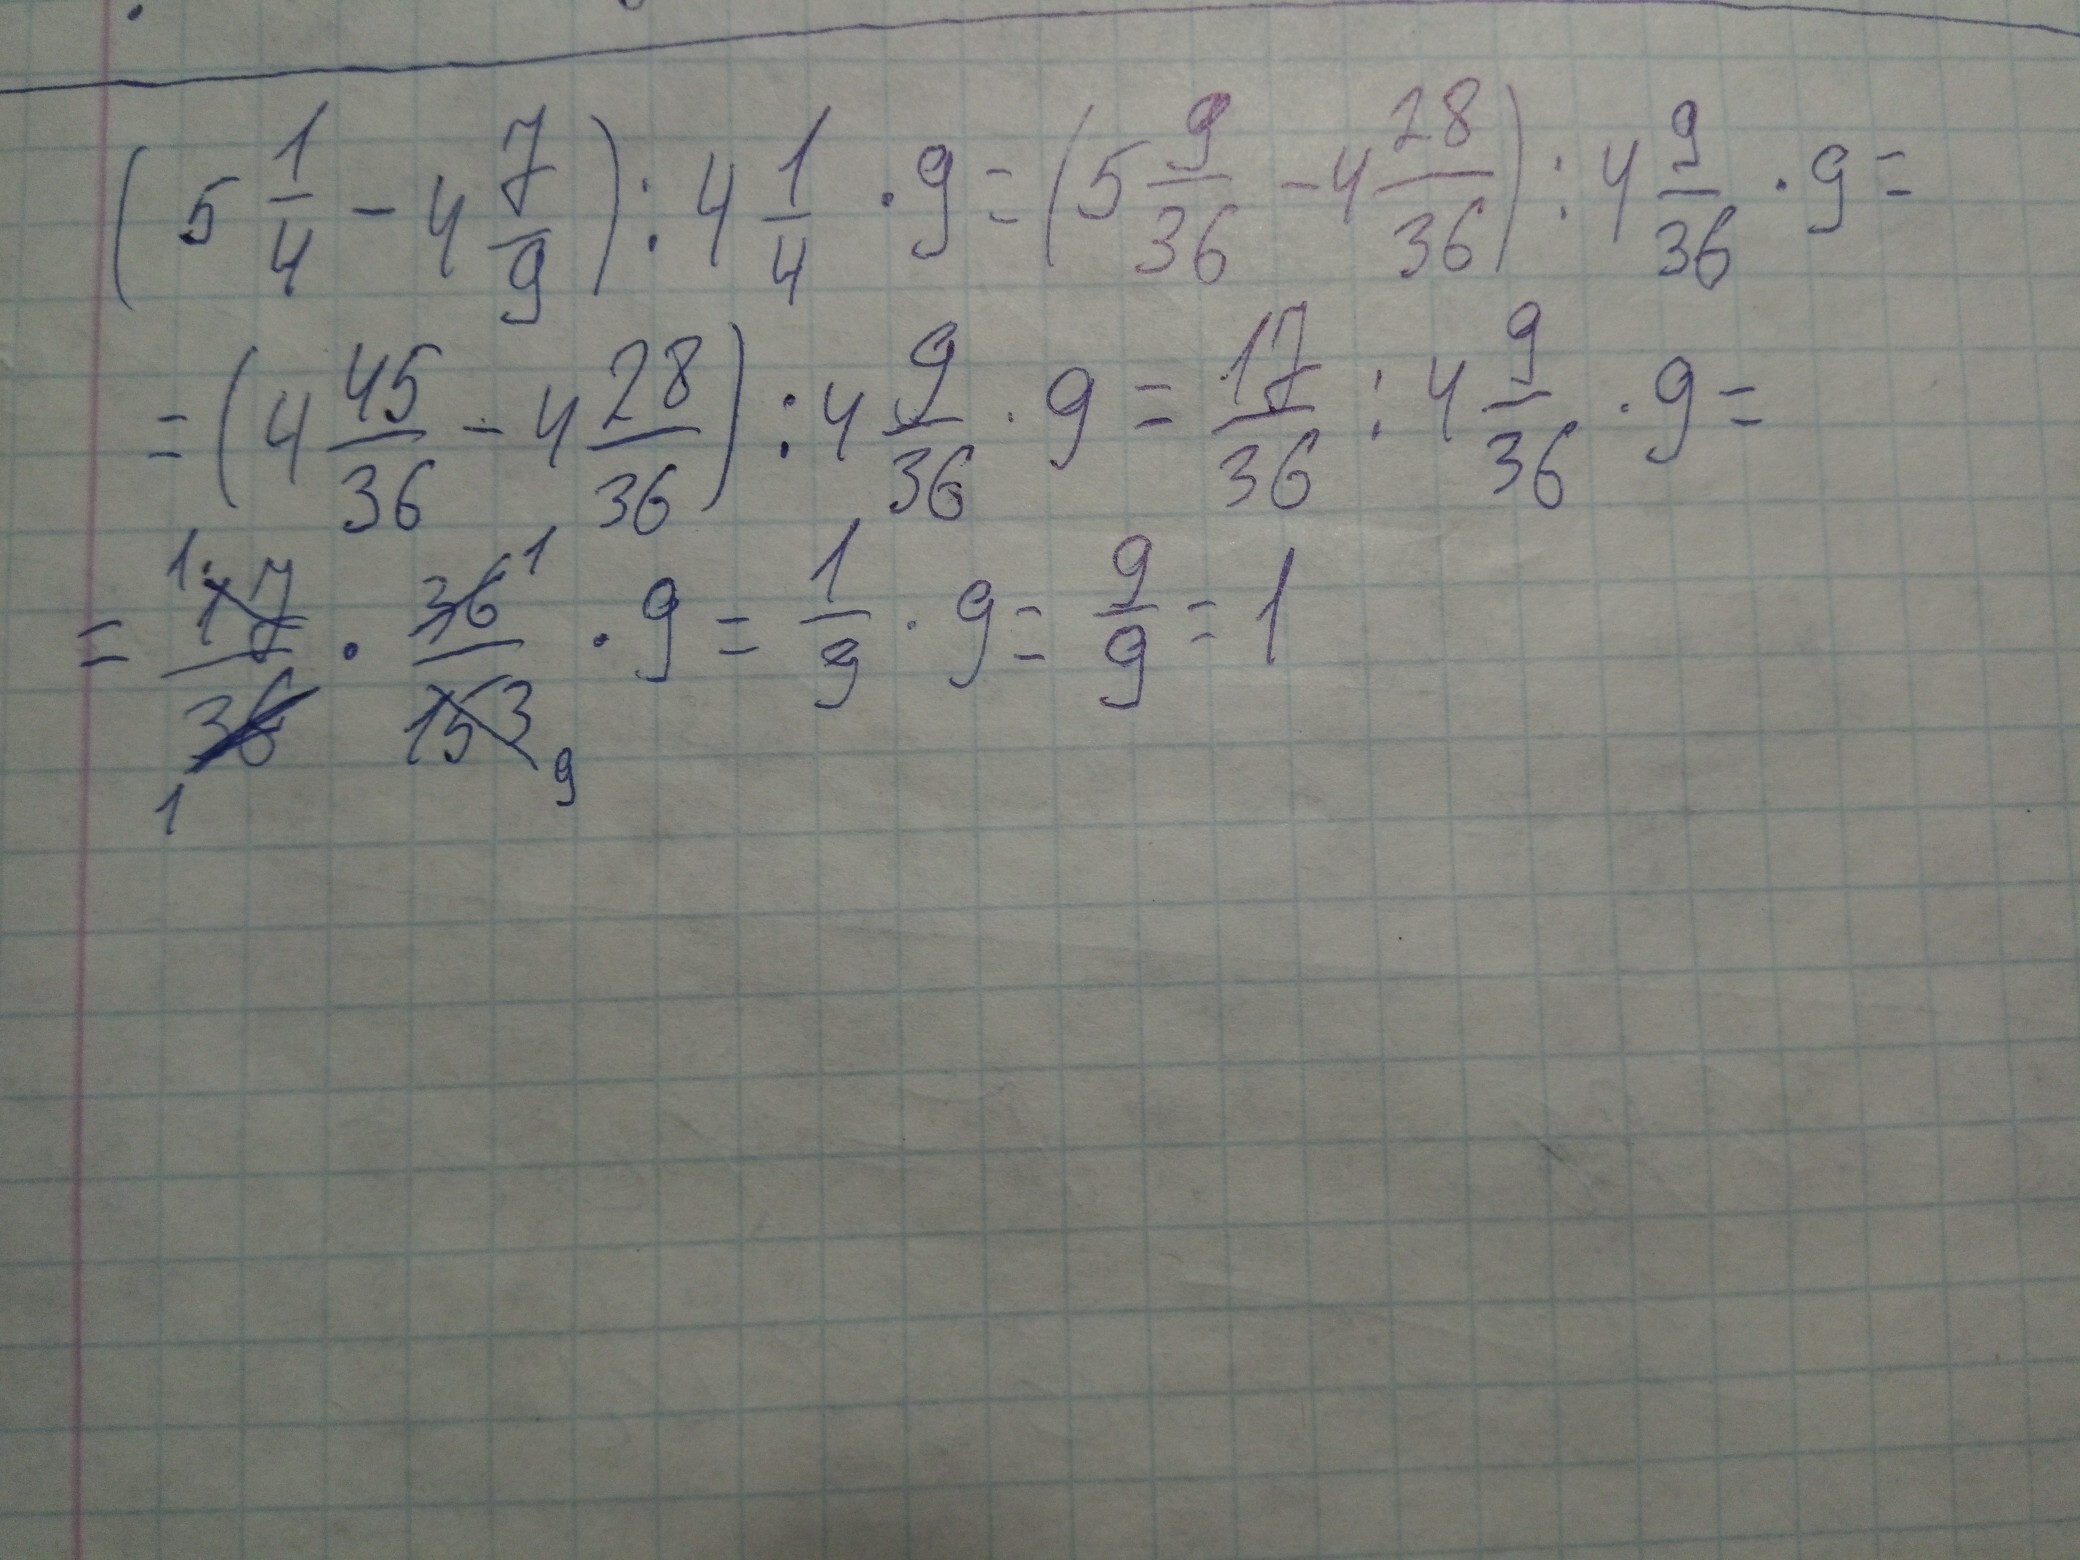 (5 1/4 - 4 7/9) : 4 1/4 · 9 = (5 9/36 - 4 28/36) : 4 9/36 · 9 =
= (4 45/36 - 4 28/36) : 4 9/36 · 9 = 17/36 : 4 9/36 · 9 =
= 1 17/36 1 · 36 1/153 9 · 9 = 1/9 · 9 = 9/9 = 1